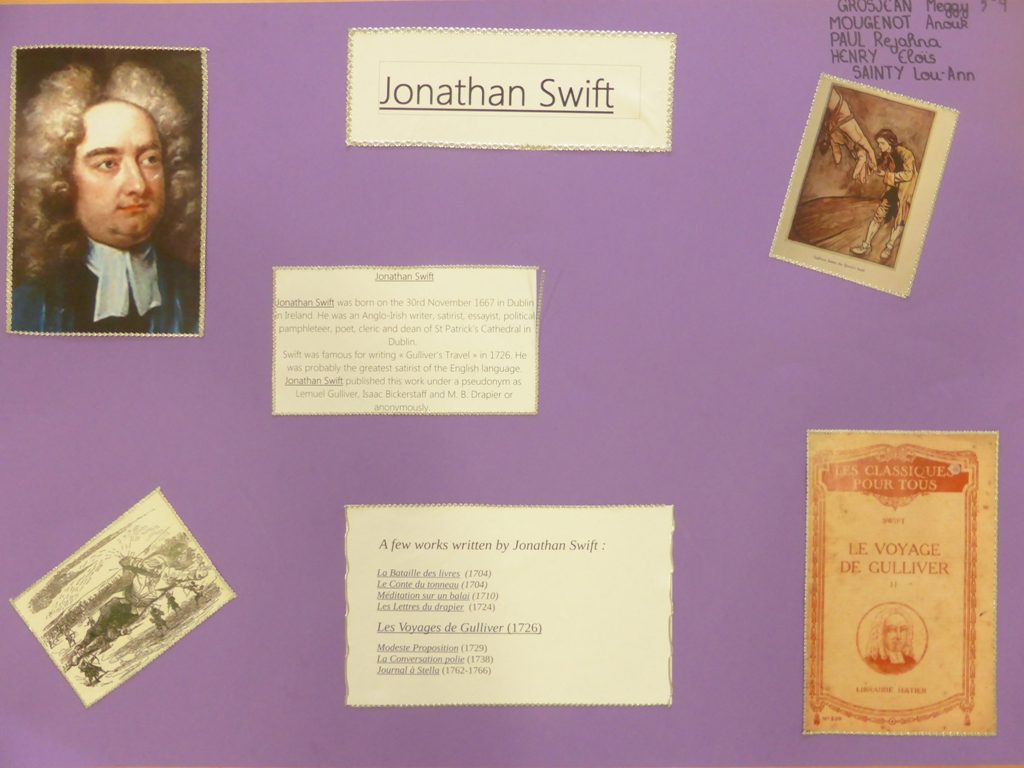 GROSJEAN Meggy 3-4
MOUGENOT Anouk
PAUL Rejahna
HENRY Eloïs
SAINTY Lou-Ann
Jonathan Swift
Jonathan Swift
Jonathan Swift was born on the 30rd November 1667 in Dublin
in Ireland. He was an Anglo-Irish writer, satirist, essayist, political
pamphleteer, poet, cleric and dean of St Patrick's Cathedral in
Dublin.
Swift was famous for writing « Gulliver's Travel » in 1726. He
was probably the greatest satirist of the English language.
Jonathan Swift published this work under a pseudonym as
Lemuel Gulliver, Isaac Bickerstaff and M. B. Drapier or
anonymously.
A few works written by Jonathan Swift :
La Bataille des livres (1704)
Le Conte du tonneau (1704)
Méditation sur un balai (1710)
Les Lettres du drapier (1724)
Les Voyages de Gulliver (1726)
Modeste Proposition (1729)
La Conversation polie (1738)
Journal à Stella (1762-1766)
LES CLASSIQUES
POUR TOUS
SWIFT
LE VOYAGE
DE GULLIVER
II
LIBRAIRIE HATIER